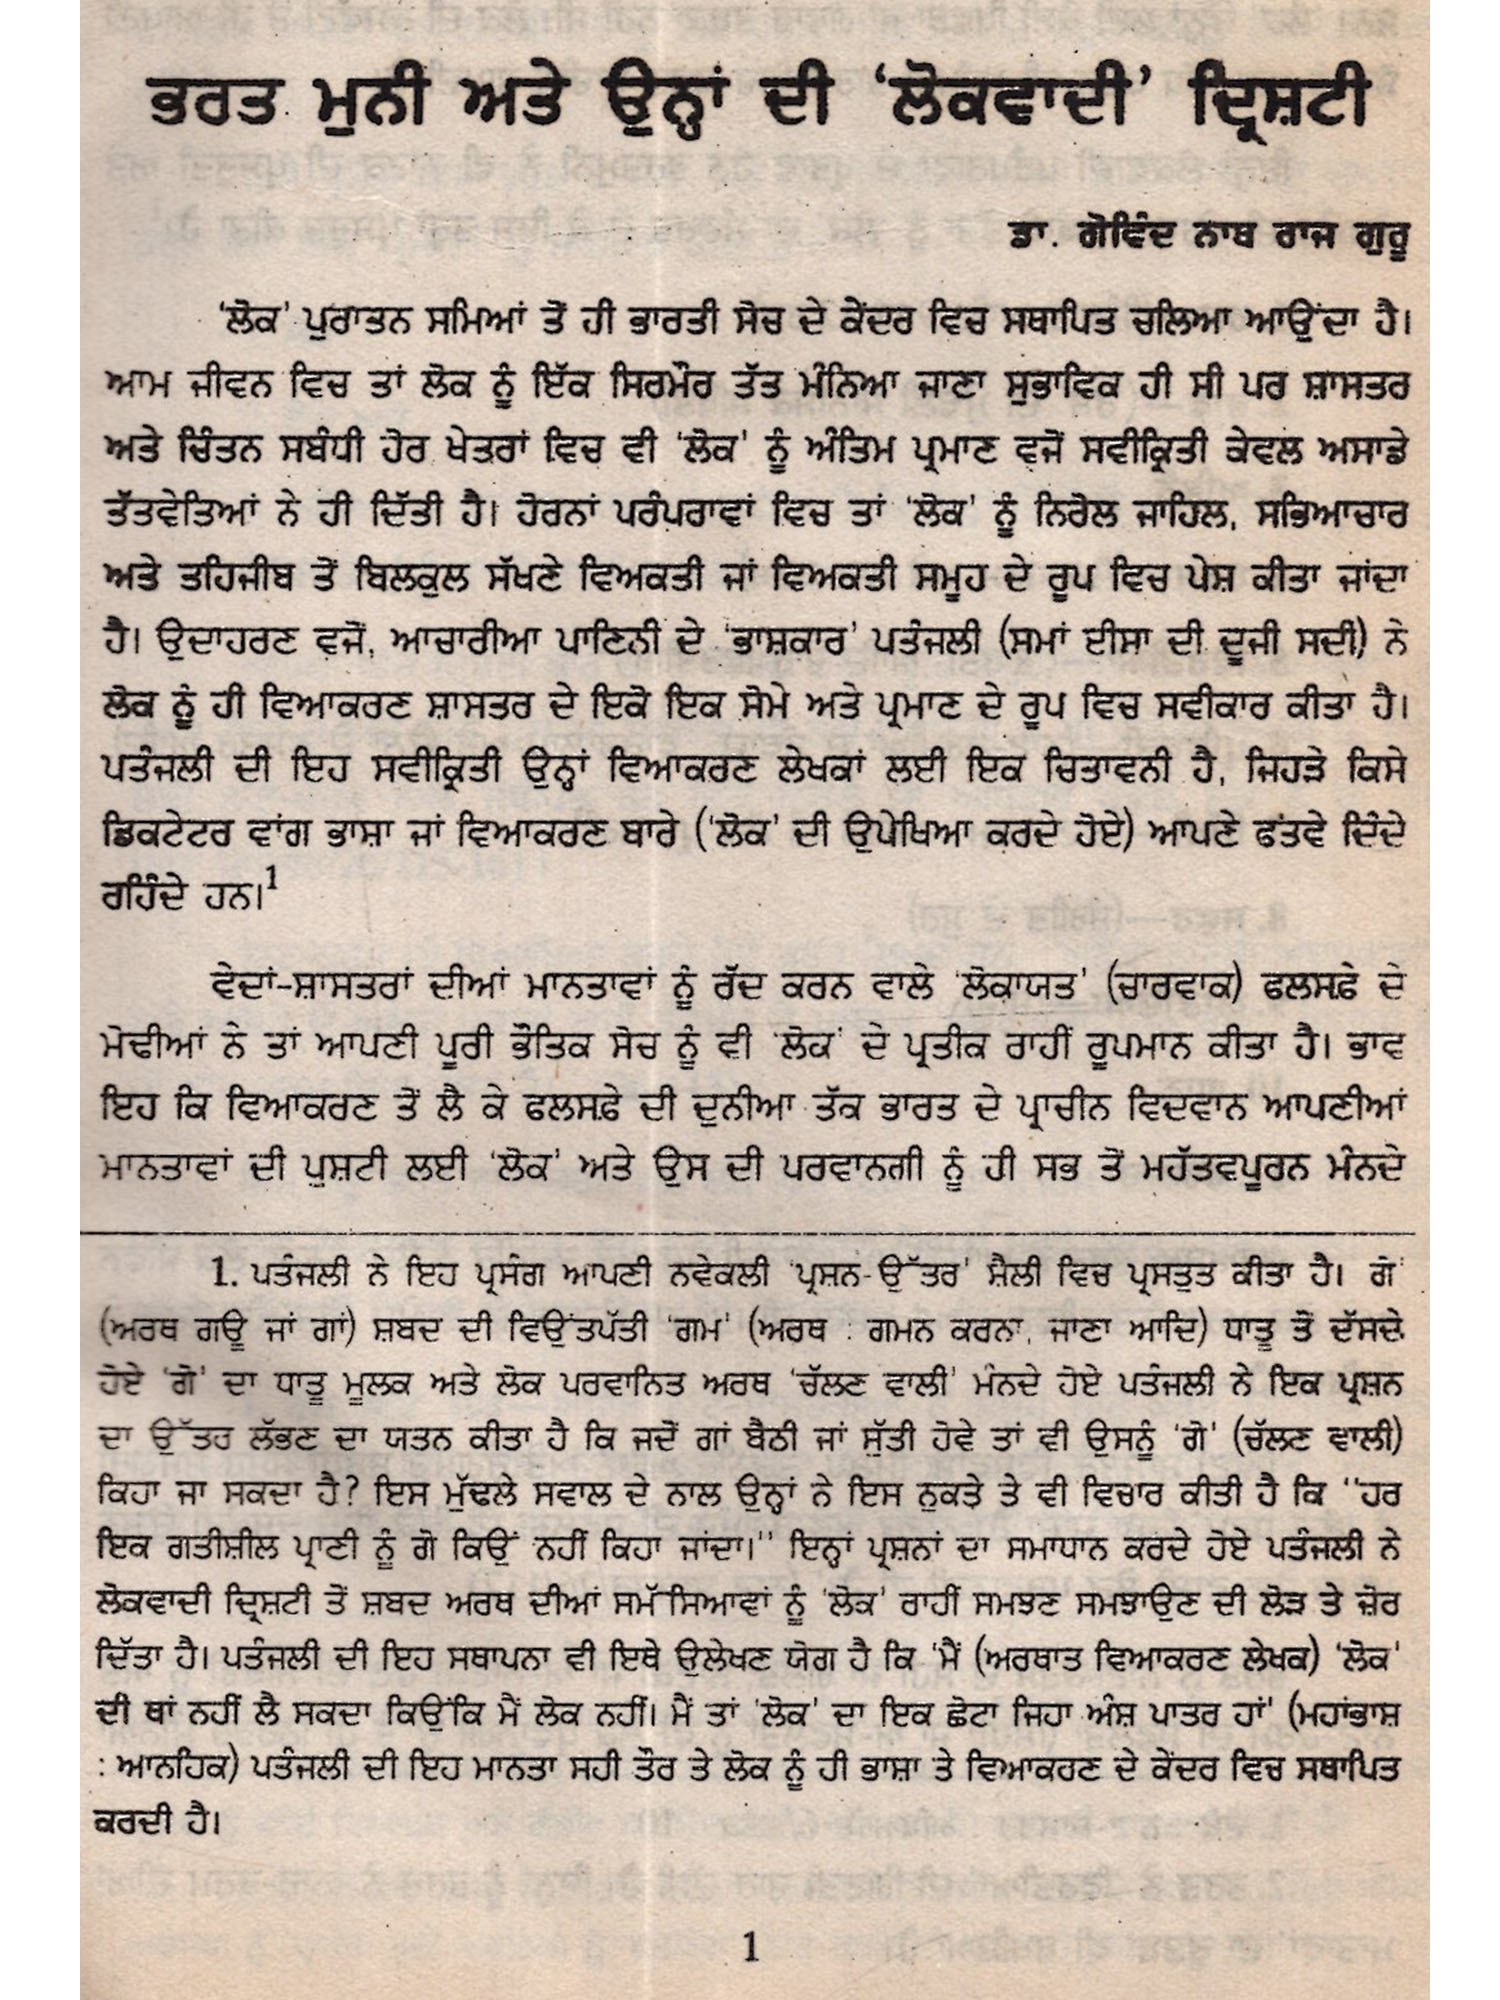 ਭਰਤ ਮੁਨੀ ਅਤੇ ਉਨ੍ਹਾਂ ਦੀ 'ਲੋਕਵਾਦੀ' ਦ੍ਰਿਸ਼ਟੀ
ਡਾ. ਗੋਵਿੰਦ ਨਾਥ ਰਾਜ ਗੁਰੂ
'ਲੋਕ' ਪੁਰਾਤਨ ਸਮਿਆਂ ਤੋਂ ਹੀ ਭਾਰਤੀ ਸੋਚ ਦੇ ਕੇਂਦਰ ਵਿਚ ਸਥਾਪਿਤ ਚਲਿਆ ਆਉਂਦਾ ਹੈ।
ਆਮ ਜੀਵਨ ਵਿਚ ਤਾਂ ਲੋਕ ਨੂੰ ਇੱਕ ਸਿਰਮੌਰ ਤੱਤ ਮੰਨਿਆ ਜਾਣਾ ਸੁਭਾਵਿਕ ਹੀ ਸੀ ਪਰ ਸ਼ਾਸਤਰ
ਅਤੇ ਚਿੰਤਨ ਸਬੰਧੀ ਹੋਰ ਖੇਤਰਾਂ ਵਿਚ ਵੀ 'ਲੋਕ' ਨੂੰ ਅੰਤਿਮ ਪ੍ਰਮਾਣ ਵਜੋਂ ਸਵੀਕ੍ਰਿਤੀ ਕੇਵਲ ਅਸਾਡੇ
ਤੱਤਵੇਤਿਆਂ ਨੇ ਹੀ ਦਿੱਤੀ ਹੈ। ਹੋਰਨਾਂ ਪਰੰਪਰਾਵਾਂ ਵਿਚ ਤਾਂ 'ਲੋਕ' ਨੂੰ ਨਿਰੋਲ ਜਾਹਿਲ, ਸਭਿਆਚਾਰ
ਅਤੇ ਤਹਿਜੀਬ ਤੋਂ ਬਿਲਕੁਲ ਸੱਖਣੇ ਵਿਅਕਤੀ ਜਾਂ ਵਿਅਕਤੀ ਸਮੂਹ ਦੇ ਰੂਪ ਵਿਚ ਪੇਸ਼ ਕੀਤਾ ਜਾਂਦਾ
ਹੈ। ਉਦਾਹਰਣ ਵਜੋਂ, ਆਚਾਰੀਆ ਪਾਣਿਨੀ ਦੇ 'ਭਾਸ਼ਕਾਰ' ਪਤੰਜਲੀ (ਸਮਾਂ ਈਸਾ ਦੀ ਦੂਜੀ ਸਦੀ) ਨੇ
ਲੋਕ ਨੂੰ ਹੀ ਵਿਆਕਰਣ ਸ਼ਾਸਤਰ ਦੇ ਇਕੋ ਇਕ ਸੋਮੇ ਅਤੇ ਪ੍ਰਮਾਣ ਦੇ ਰੂਪ ਵਿਚ ਸਵੀਕਾਰ ਕੀਤਾ ਹੈ।
ਪਤੰਜਲੀ ਦੀ ਇਹ ਸਵੀਕ੍ਰਿਤੀ ਉਨ੍ਹਾਂ ਵਿਆਕਰਣ ਲੇਖਕਾਂ ਲਈ ਇਕ ਚਿਤਾਵਨੀ ਹੈ, ਜਿਹੜੇ ਕਿਸੇ
ਡਿਕਟੇਟਰ ਵਾਂਗ ਭਾਸ਼ਾ ਜਾਂ ਵਿਆਕਰਣ ਬਾਰੇ ('ਲੋਕ' ਦੀ ਉਪੇਖਿਆ ਕਰਦੇ ਹੋਏ) ਆਪਣੇ ਫਤਵੇ ਦਿੰਦੇ
ਰਹਿੰਦੇ ਹਨ।1
ਵੇਦਾਂ-ਸ਼ਾਸਤਰਾਂ ਦੀਆਂ ਮਾਨਤਾਵਾਂ ਨੂੰ ਰੱਦ ਕਰਨ ਵਾਲੇ 'ਲੋਕਾਯਤ' (ਚਾਰਵਾਕ) ਫਲਸਫ਼ੇ ਦੇ
ਮੋਢੀਆਂ ਨੇ ਤਾਂ ਆਪਣੀ ਪੂਰੀ ਭੌਤਿਕ ਸੋਚ ਨੂੰ ਵੀ 'ਲੋਕ' ਦੇ ਪ੍ਰਤੀਕ ਰਾਹੀਂ ਰੂਪਮਾਨ ਕੀਤਾ ਹੈ। ਭਾਵ
ਇਹ ਕਿ ਵਿਆਕਰਣ ਤੋਂ ਲੈ ਕੇ ਫਲਸਫ਼ੇ ਦੀ ਦੁਨੀਆ ਤੱਕ ਭਾਰਤ ਦੇ ਪ੍ਰਾਚੀਨ ਵਿਦਵਾਨ ਆਪਣੀਆਂ
ਮਾਨਤਾਵਾਂ ਦੀ ਪੁਸ਼ਟੀ ਲਈ 'ਲੋਕ' ਅਤੇ ਉਸ ਦੀ ਪਰਵਾਨਗੀ ਨੂੰ ਹੀ ਸਭ ਤੋਂ ਮਹੱਤਵਪੂਰਨ ਮੰਨਦੇ
1. ਪਤੰਜਲੀ ਨੇ ਇਹ ਪ੍ਰਸੰਗ ਆਪਣੀ ਨਵੇਕਲੀ 'ਪ੍ਰਸ਼ਨ-ਉੱਤਰ' ਸ਼ੈਲੀ ਵਿਚ ਪ੍ਰਸਤੁਤ ਕੀਤਾ ਹੈ। ਗੋ'
(ਅਰਥ ਗਊ ਜਾਂ ਗਾਂ) ਸ਼ਬਦ ਦੀ ਵਿਉਂਤਪੱਤੀ 'ਗਮ' (ਅਰਥ : ਗਮਨ ਕਰਨਾ, ਜਾਣਾ ਆਦਿ) ਧਾਤੂ ਤੋਂ ਦੱਸਦੇ
ਹੋਏ 'ਗੋ' ਦਾ ਧਾਤੂ ਮੂਲਕ ਅਤੇ ਲੋਕ ਪਰਵਾਨਿਤ ਅਰਥ 'ਚੱਲਣ ਵਾਲੀ' ਮੰਨਦੇ ਹੋਏ ਪਤੰਜਲੀ ਨੇ ਇਕ ਪ੍ਰਸ਼ਨ
ਦਾ ਉੱਤਰ ਲੱਭਣ ਦਾ ਯਤਨ ਕੀਤਾ ਹੈ ਕਿ ਜਦੋਂ ਗਾਂ ਬੈਠੀ ਜਾਂ ਸੁੱਤੀ ਹੋਵੇ ਤਾਂ ਵੀ ਉਸਨੂੰ 'ਗੋ' (ਚੱਲਣ ਵਾਲੀ)
ਕਿਹਾ ਜਾ ਸਕਦਾ ਹੈ? ਇਸ ਮੁੱਢਲੇ ਸਵਾਲ ਦੇ ਨਾਲ ਉਨ੍ਹਾਂ ਨੇ ਇਸ ਨੁਕਤੇ ਤੇ ਵੀ ਵਿਚਾਰ ਕੀਤੀ ਹੈ ਕਿ ''ਹਰ
ਇਕ ਗਤੀਸ਼ੀਲ ਪ੍ਰਾਣੀ ਨੂੰ ਗੋ ਕਿਉਂ ਨਹੀਂ ਕਿਹਾ ਜਾਂਦਾ।'' ਇਨ੍ਹਾਂ ਪ੍ਰਸ਼ਨਾਂ ਦਾ ਸਮਾਧਾਨ ਕਰਦੇ ਹੋਏ ਪਤੰਜਲੀ ਨੇ
ਲੋਕਵਾਦੀ ਦ੍ਰਿਸ਼ਟੀ ਤੋਂ ਸ਼ਬਦ ਅਰਥ ਦੀਆਂ ਸਮੱਸਿਆਵਾਂ ਨੂੰ 'ਲੋਕ' ਰਾਹੀਂ ਸਮਝਣ ਸਮਝਾਉਣ ਦੀ ਲੋੜ ਤੇ ਜ਼ੋਰ
ਦਿੱਤਾ ਹੈ। ਪਤੰਜਲੀ ਦੀ ਇਹ ਸਥਾਪਨਾ ਵੀ ਇਥੇ ਉਲੇਖਣ ਯੋਗ ਹੈ ਕਿ 'ਮੈਂ (ਅਰਥਾਤ ਵਿਆਕਰਣ ਲੇਖਕ) 'ਲੋਕ'
ਦੀ ਥਾਂ ਨਹੀਂ ਲੈ ਸਕਦਾ ਕਿਉਂਕਿ ਮੈਂ ਲੋਕ ਨਹੀਂ। ਮੈਂ ਤਾਂ 'ਲੋਕ' ਦਾ ਇਕ ਛੋਟਾ ਜਿਹਾ ਅੰਸ਼ ਪਾਤਰ ਹਾਂ' (ਮਹਾਂਭਾਸ਼
: ਆਨਹਿਕ) ਪਤੰਜਲੀ ਦੀ ਇਹ ਮਾਨਤਾ ਸਹੀ ਤੌਰ ਤੇ ਲੋਕ ਨੂੰ ਹੀ ਭਾਸ਼ਾ ਤੇ ਵਿਆਕਰਣ ਦੇ ਕੇਂਦਰ ਵਿਚ ਸਥਾਪਿਤ
ਕਰਦੀ ਹੈ।
1